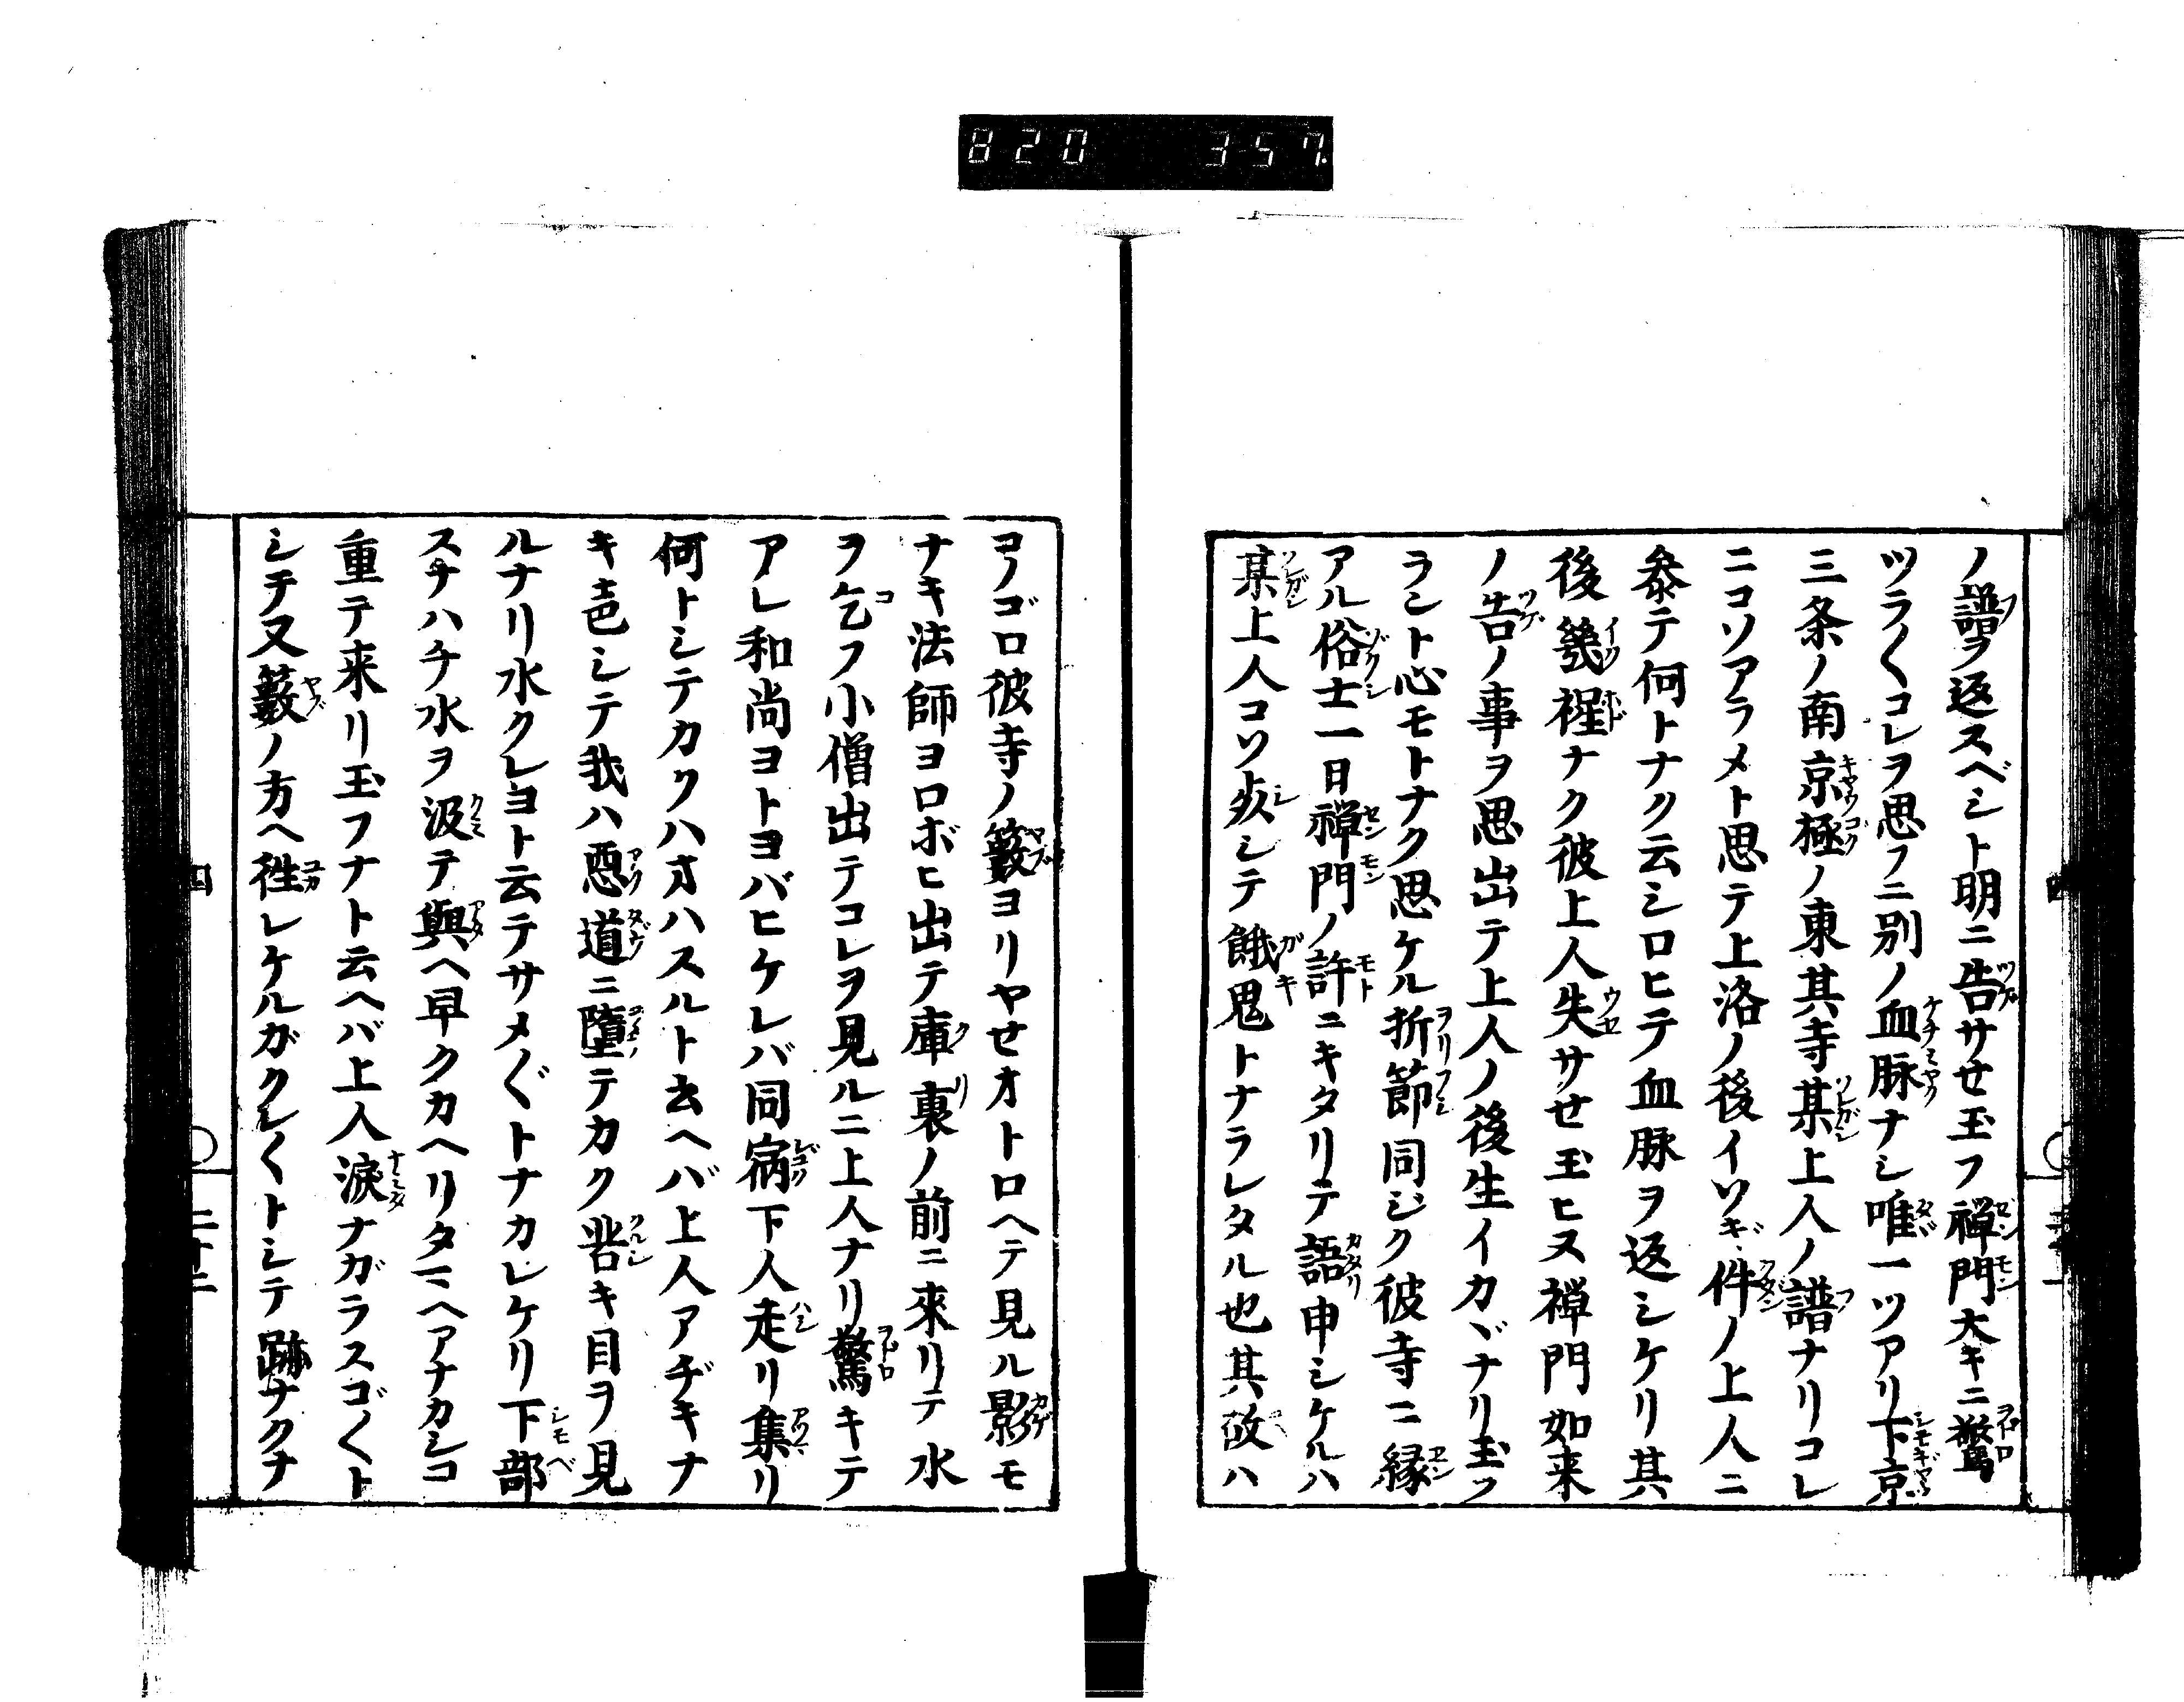 820 357
ノ譜ヲ返スベシト明ニ告サセ玉フ禅門大キニ驚
ツラ〱コレヲ思フニ別ノ血脉ナシ唯一ツアリ下京
三条ノ南京極ノ東其寺某上人ノ譜ナリコレ
ニコソアラメト思テ上洛ノ後イソギ件ノ上人ニ
參テ何トナク云シロヒテ血脉ヲ返シケリ其
後幾程ナク彼上人失サセ玉ヒヌ禅門如来
ノ告ノ事ヲ思出テ上人ノ後生イカヾナリ玉フ
ラント心モトナク思ケル折節同ジク彼寺ニ縁
アル俗士一日禅門ノ許ニキタリテ語申シケルハ
某上人コソ死シテ餓鬼トナラレタル也其故ハ
コノゴロ彼寺ノ籔ヨリヤセオトロヘテ見ル影モ
ナキ法師ヨロボヒ出テ庫裏ノ前ニ來リテ水
ヲ乞フ小僧出テコレヲ見ルニ上人ナリ驚キテ
アレ和尚ヨトヨバヒケレバ同宿下人走リ集リ
何トシテカクハオハスルト云ヘバ上人アヂキナ
キ色シテ我ハ悪道ニ墮テカク苦キ目ヲ見
ルナリ水クレヨト云テサメ〲トナカレケリ下部
スナハチ水ヲ汲テ與ヘ早クカヘリタマヘアナカシコ
重テ来リ玉フナト云ヘバ上人淚ナガラスゴ〱ト
シテ又籔ノ方ヘ徃レケルガクレ〱トシテ跡ナクナ
四
二十二